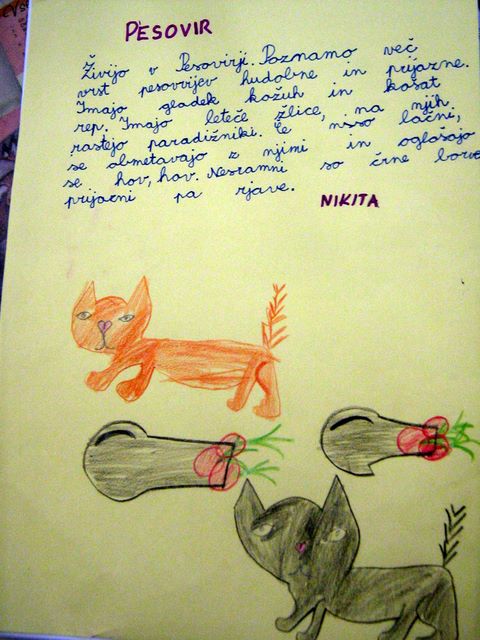 PESOVIR
Živijo v Pesovirji. Poznamo več
vrst pesovirjev hudobne in prijazne.
Imajo gladek kožuh in košat
rep. Imajo leteče žlice, na njih
rastejo paradižniki. Če niso lačni,
se obmetavajo z njimi in oglašajo
se hov, hov. Nesramni so črne barve
prijazni pa rjave.
NIKITA